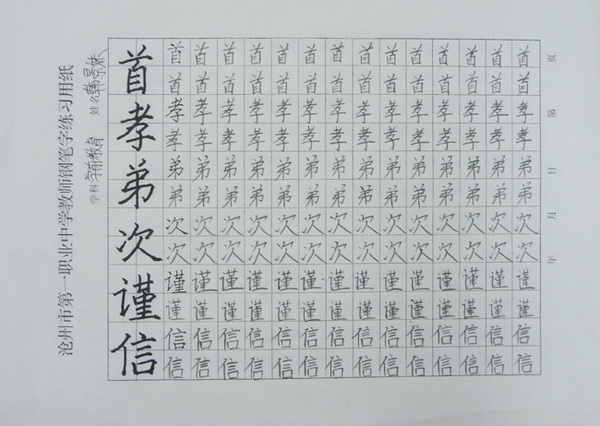 沧州市第一职业中学教师钢笔字练习用纸
学科 学前教育 姓名 韩景
年 月 日 第 页
首 首 首 首 首 首 首 首 首 首 首 首 首 首 首
首 首 首 首 首 首 首 首 首 首 首 首 首 首
孝 孝 孝 孝 孝 孝 孝 孝 孝 孝 孝 孝 孝 孝 孝
孝 孝 孝 孝 孝 孝 孝 孝 孝 孝 孝 孝 孝 孝
弟 弟 弟 弟 弟 弟 弟 弟 弟 弟 弟 弟 弟 弟 弟
弟 弟 弟 弟 弟 弟 弟 弟 弟 弟 弟 弟 弟 弟
次 次 次 次 次 次 次 次 次 次 次 次 次 次 次
次 次 次 次 次 次 次 次 次 次 次 次 次 次
谨 谨 谨 谨 谨 谨 谨 谨 谨 谨 谨 谨 谨 谨 谨
谨 谨 谨 谨 谨 谨 谨 谨 谨 谨 谨 谨 谨 谨
信 信 信 信 信 信 信 信 信 信 信 信 信 信 信
信 信 信 信 信 信 信 信 信 信 信 信 信 信